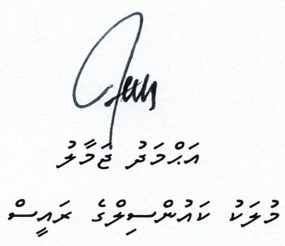 އަޙްމަދު ޖަމާލު
މުލަކު ކައުންސިލްގެ ރައީސް